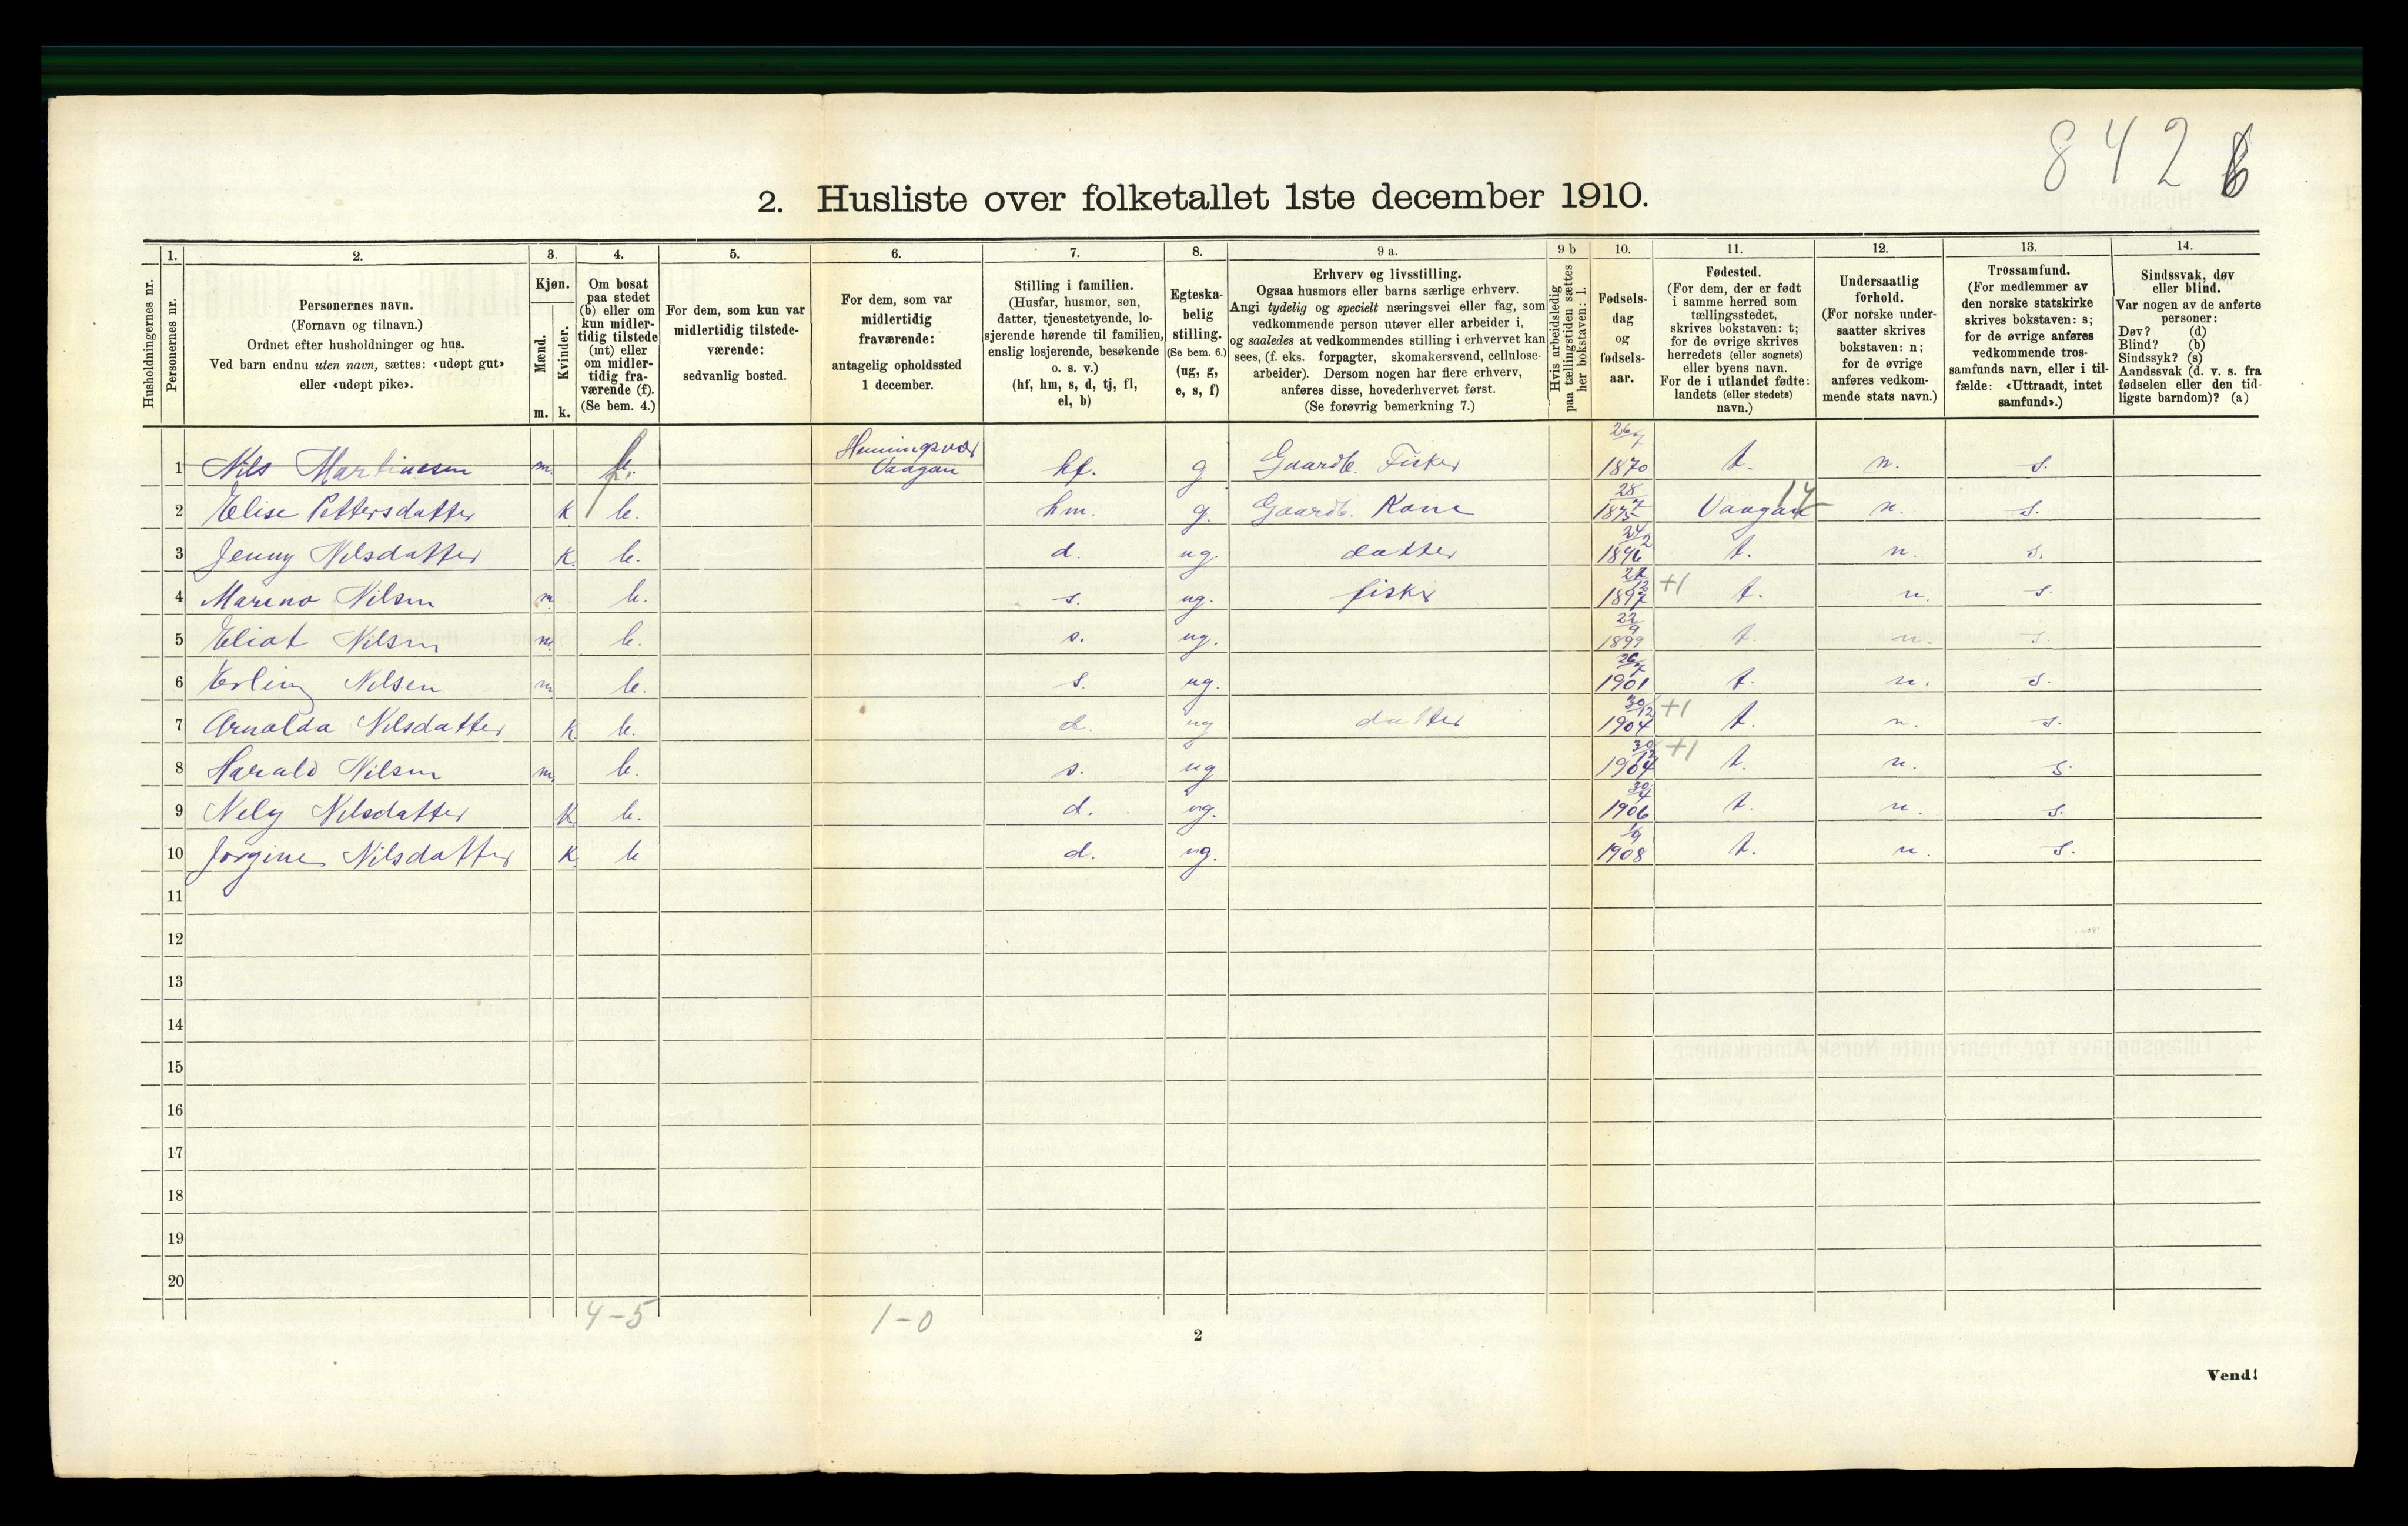 842
2. Husliste over folketallet 1ste december 1910.
1. 2. 3. 4. 5. 6. 7. 8. 9 a. 9 b 10. 11. 12. 13. 14.
Husholdningernes nr.
Personernes nr.
Personernes navn.
(Fornavn og tilnavn.)
Ordnet efter husholdninger og hus.
Ved barn endnu uten navn, sættes: «udøpt gut»
eller «udøpt pike».
Kjøn.
Mænd.
Kvinder.
m. k.
Om bosat
paa stedet
(b) eller om
kun midler-
tidig tilstede
(mt) eller
om midler-
tidig fra-
værende (f).
(Se bem. 4.)
For dem, som kun var
midlertidig tilstede-
værende:
sedvanlig bosted.
For dem, som var
midlertidig
fraværende:
antagelig opholdssted
1 december.
Stilling i familien.
(Husfar, husmor, søn,
datter, tjenestetyende, lo-
sjerende hørende til familien,
enslig losjerende, besøkende
o. s. v.)
(hf, hm, s, d, tj, fl,
el, b)
Egteska-
belig
stilling.
(Se bem. 6.)
(ug, g,
e, s, f)
Erhverv og livsstilling.
Ogsaa husmors eller barns særlige erhverv.
Angi tydelig og specielt næringsvei eller fag, som
vedkommende person utøver eller arbeider i,
og saaledes at vedkommendes stilling i erhvervet kan
sees, (f. eks. forpagter, skomakersvend, cellulose-
arbeider). Dersom nogen har flere erhverv,
anføres disse, hovederhvervet først.
(Se forøvrig bemerkning 7.)
Hvis arbeidsledig
paa tællingstiden sættes
her bokstaven: l.
Fødsels-
dag
og
fødsels-
aar.
Fødested.
(For dem, der er født
i samme herred som
tællingsstedet,
skrives bokstaven: t;
for de øvrige skrives
herredets (eller sognets)
eller byens navn.
For de i utlandet fødte:
landets (eller stedets)
navn.)
Undersaatlig
forhold.
(For norske under-
saatter skrives
bokstaven: n;
for de øvrige
anføres vedkom-
mende stats navn.)
Trossamfund.
(For medlemmer av
den norske statskirke
skrives bokstaven: s;
for de øvrige anføres
vedkommende tros-
samfunds navn, eller i til-
fælde: «Uttraadt, intet
samfund».)
Sindssvak, døv
eller blind.
Var nogen av de anførte
personer:
Døv? (d)
Blind? (b)
Sindssyk? (s)
Aandssvak (d. v. s. fra
fødselen eller den tid-
ligste barndom)? (a)
1 Nils Martinesen m. f. Henningsvær Vaagan hf. g Gaardb. Fisker 26/7 1870 t. n. s.
2 Elise Pettersdatter k b. hm. g. Gaardb. Kone 28/7 1875 Vaagan n. s.
3 Jenny Nilsdatter K. b. d. ug. datter 24/2 1896 t. n. s.
4 Mareno Nilsen m b. s. ug. fisker 12 1897 +1 t. n. s.
5 Eliot Nilsen m. b. s. ug. 22/9 1899 t. n. s.
6 Erling Nilsen m. b. s. ug. 26/7 1901 t. n. s.
7 Arnolda Nilsdatter K b. d. ug datter 30/12 1904 +1 t. n. s.
8 Harald Nilsen m. b. s. ug 30/12 1904 +1 t. n. s.
9 Nely Nilsdatter K b. d. ug. 30/4 1906 t. n. s.
10 Jorgine Nilsdatter K. b d. ug. 1/9 1908 t. n. s.
11
12
13
14
15
16
17
18
19
20
4-5 1-0
2
Vend!